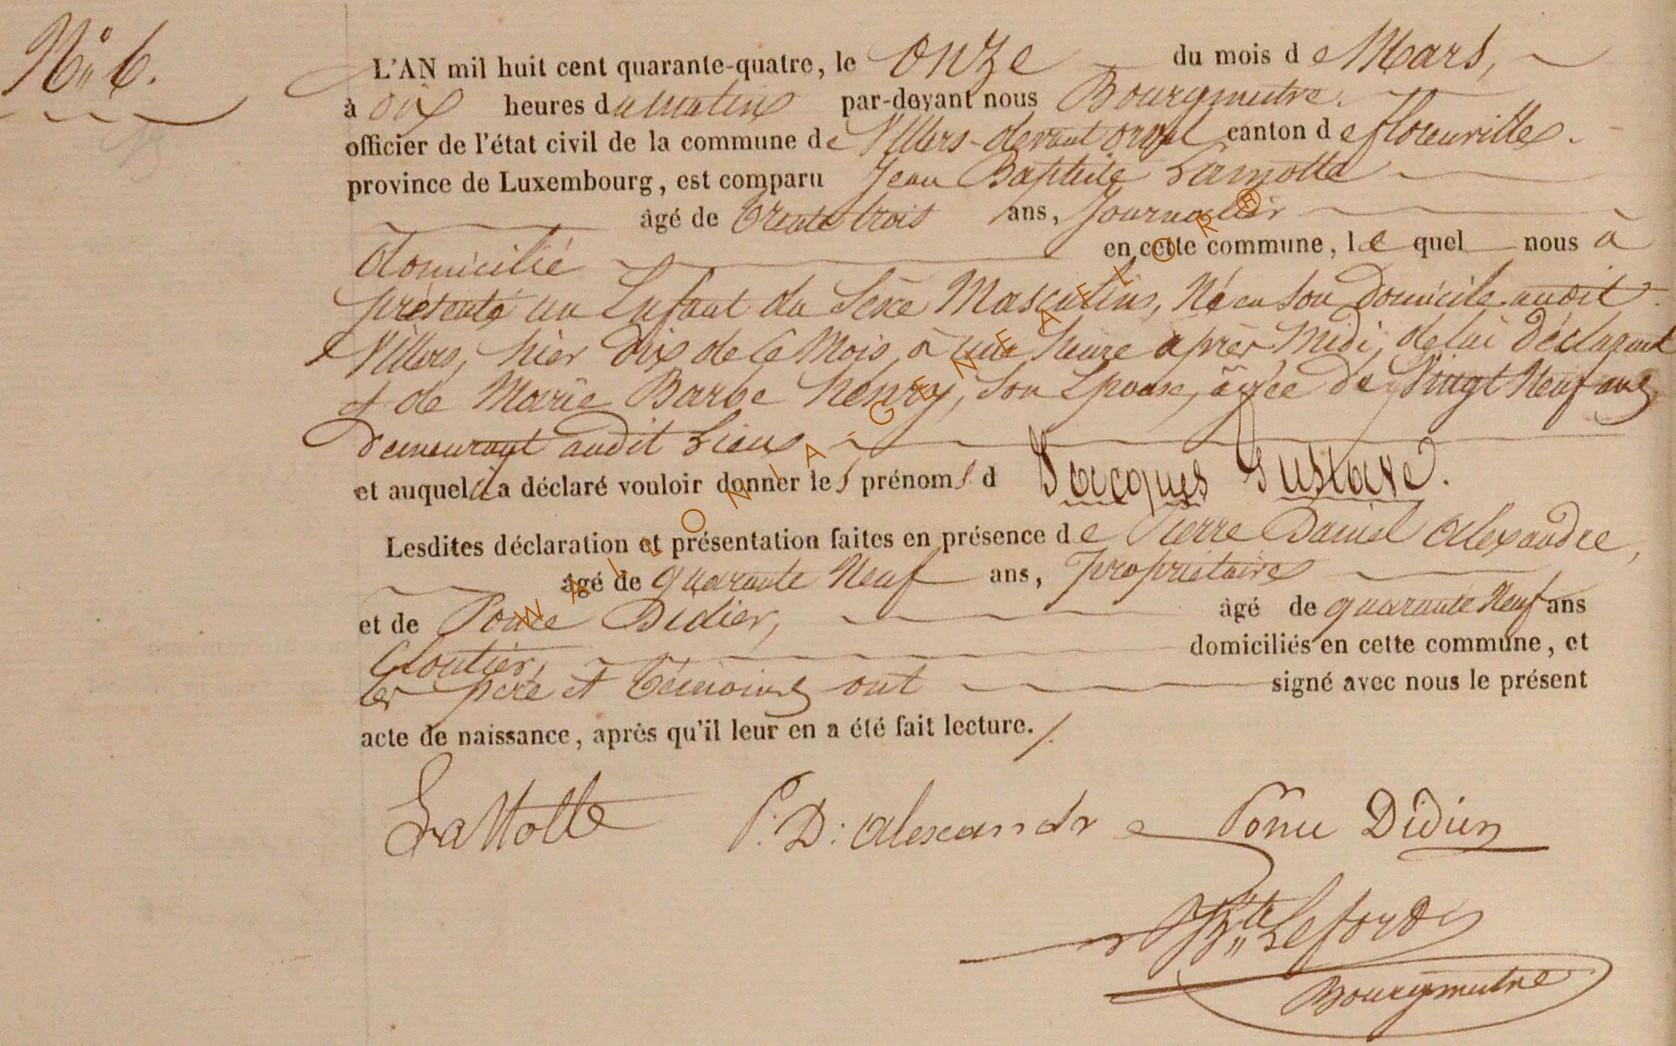 N° 6.
L'AN mil huit cent quarante-quatre, le onze du mois de Mars,
à dix heures du matin par-devant nous Bourgmestre.
officier de l'état civil de la commune de Villers-devant orval canton de florenville.
province de Luxembourg, est comparu Jean Baptiste Lamotte
âgé de trente trois ans, Journalier
domicilié en cette commune, le quel nous à
présenté un Enfant du Sexe Masculin, Né en son Domicile audit
Villers, hier Dix de Ce Mois, à une heure après Midi, de lui Déclarant
et de Marie Barbe henry, Son Epouse, âgée De Vingt Neuf ans
Demeurant audit Lieu
et auquel il a déclaré vouloir donner les prénoms d Jacques Gustave.
Lesdites déclaration et présentation faites en présence de Pierre Daniel Alexandre,
âgé de quarante Neuf ans, propriétaire
et de Ponce Didier, âgé de quarante Neuf ans
Cloutier, domiciliés en cette commune, et
les père et témoins ont signé avec nous le présent
acte de naissance, après qu'il leur en a été fait lecture./.
LaMotte P. D: alexandre Ponce Didier
Bte Leford
Bourgmestre
WALLONIA-GENEAFLOR®